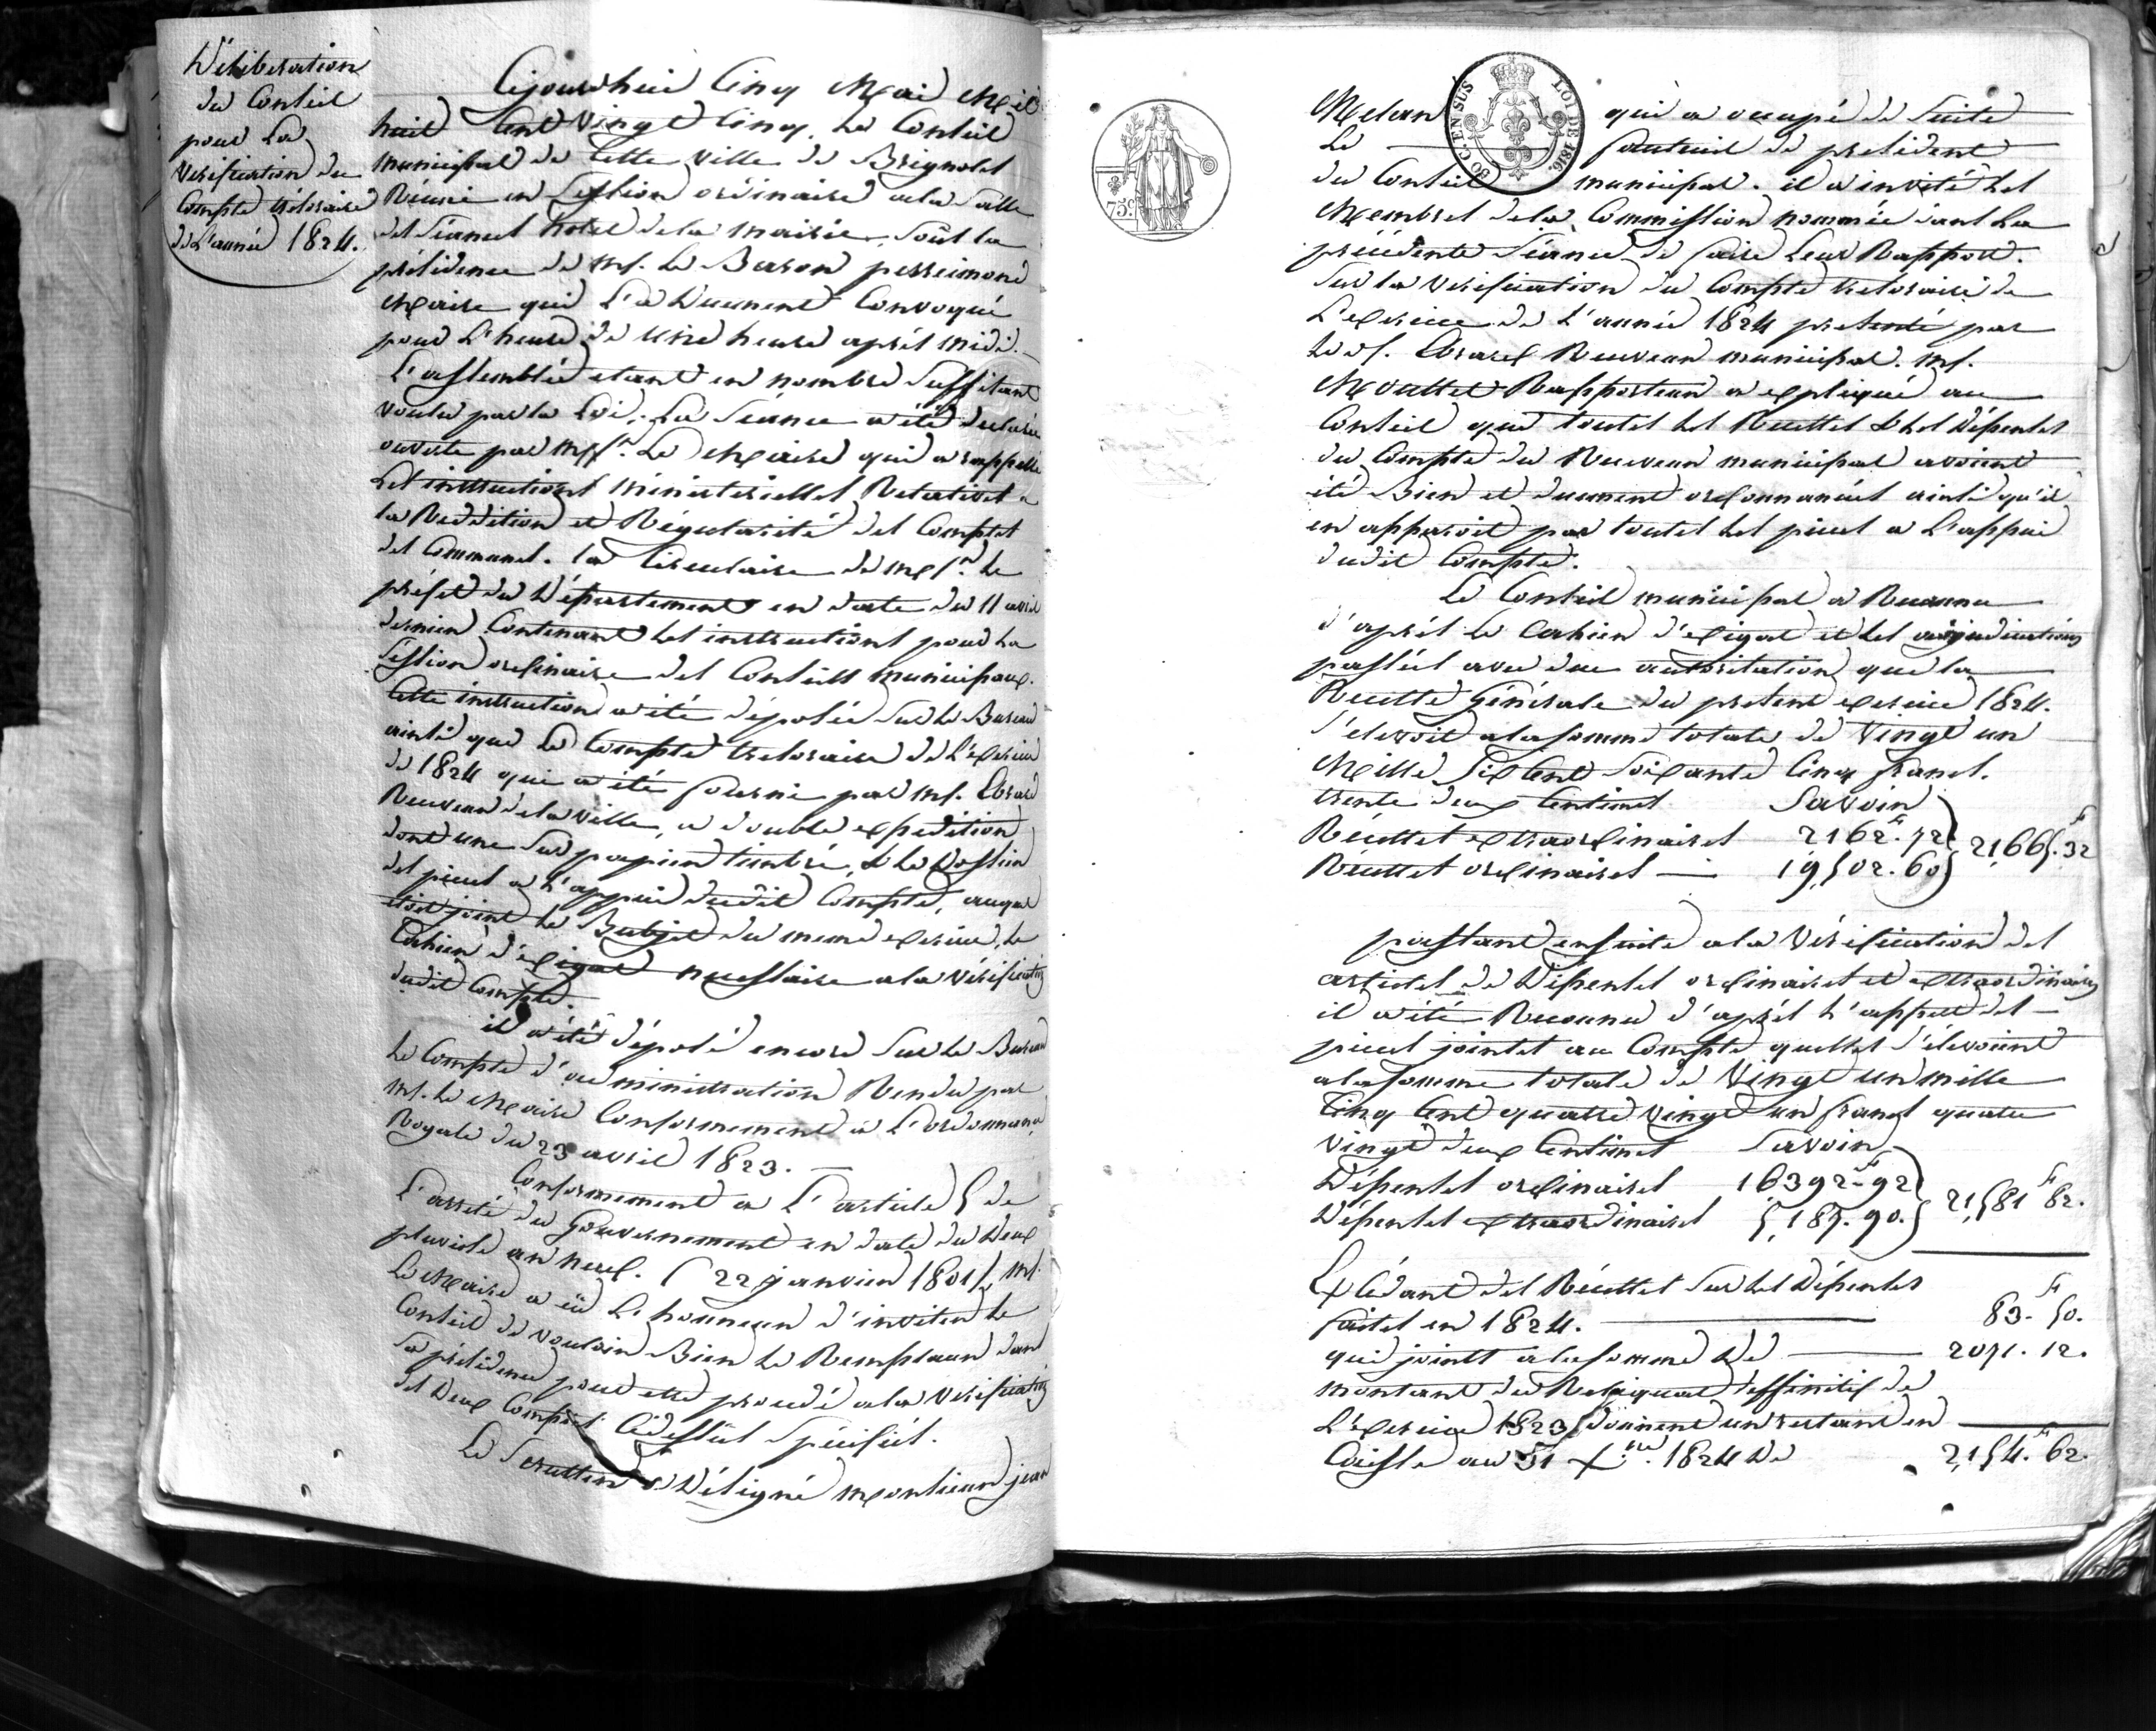 Déliberation
du Conseil
pour La
Verification du
Compte trésoraire
de L'année 1824.
Cejourd'hui Cinq Mai Mil
huit Cent Vingt Cinq. Le Conseil
municipal de Cette ville de Brignoles
Réuni en Session ordinaire a la Salle
des séances hotel de la mairie, sous la
présidence de Mr. Le Baron perreimond
Maire qui L'a Duement Convoqué
pour L'heure de une heure après midi.
L'assemblée etant en nombre Suffisant
voulu par la Loi, La Séance a été declarée
ouverte par Mssr. Le Maire qui a rappellé
Les instructions ministerielles Relatives a
la Reddition et Régularité des Comptes
des Communes. la Circulaire de Mr. le
préfet du Département en date du 11 avril
dernier Contenant les instructions pour La
Session ordinaire des Conseils municipaux.
Cette instruction a été déposée sur le Bureau
ainsi que Le Compte tresoraire de L'Exercice
de 1824 qui a été fourni par Mr. Ebrard
Receveur de la ville, a double expedition
dont une Sur papier timbré, & Le Dossier
des pieces a L'appui dudit Compte, auquel
etoit joint Le Budjet du meme exercice, le
Cahier d'exigat necessaire a la vérification
dudit Compte.
il a été déposé encore Sur Le Bureau
Le Compte d'administration Rendu par
Mr. Le Maire Conformement à L'ordonnance
Royale du 23 avril 1823.
Conformement a L'article 5 de
L'arreté du Gouvernement en date du Deux
pluviose an neuf. (22 janvier 1801), Mr.
Le Maire a eü L'honneur d'inviter le
Conseil de vouloir Bien Le Remplacer dans
Sa présidence pour etre procédé a la Verification
des Deux Comptes Cidessüs Spécifiés.
Le Scruttin a Désigné Monsieur jean
80 C. EN SUS
LOI DE 1816.
75.c
Melan qui a occupé de Suite
Le fauteuil de president
du Conseil municipal. il a invité Les
Membres de la Commission nommée dans La
précédente Séance de faire Leur Rapport.
Sur la verification du Compte tresoraire de
L'exercice de L'année 1824 presenté par
Le sr. Ebrard Receveur municipal. Mr.
Mouttet Rapporteur a expliqué au
Conseil que toutes Les Recettes & Les Dépenses
du Compte du Receveur municipal avoient
été Bien et duement ordonnancées ainsi qu'il
en apparoit par toutes Les pieces a L'appui
dudit Compte.
Le Conseil municipal a Reconnu
d'après Le Cahier d'exigat et les adjudications
passées avec due autorisation que la
Recette Générale du present exercice 1824.
S'elevoit a la somme totale de Vingt un
Mille Six Cent Soixante Cinq francs.
trente deux Centimes Savoir
Récettes extraordinaires 2162.fr 72
21665.fr 32
Recettes ordinaires 19,502. 60
passant ensuite a la Vérification des
articles de Dépenses ordinaires et extraordinaires
il a été Reconnu d'après L'appel des
pieces jointes au Compte quelles S'élevoient
a la somme totale de Vingt un mille
Cinq Cent quatre vingt un francs quatre
vingt deux Centimes Savoir
Dépenses ordinaires 16392.fr 92
21,581fr 82.
Dépenses extraordinaires 5,189. 90.
Excédant des Récettes Sur Les Dépenses
faites en 1824. 83.fr 50.
qui joints a la somme De 2071. 12.
montant du Reliquat deffinitif de
L'Exercice 1823 donnent un restant en
Caisse au 31 Xbre. 1824 De 2,154.fr 62.